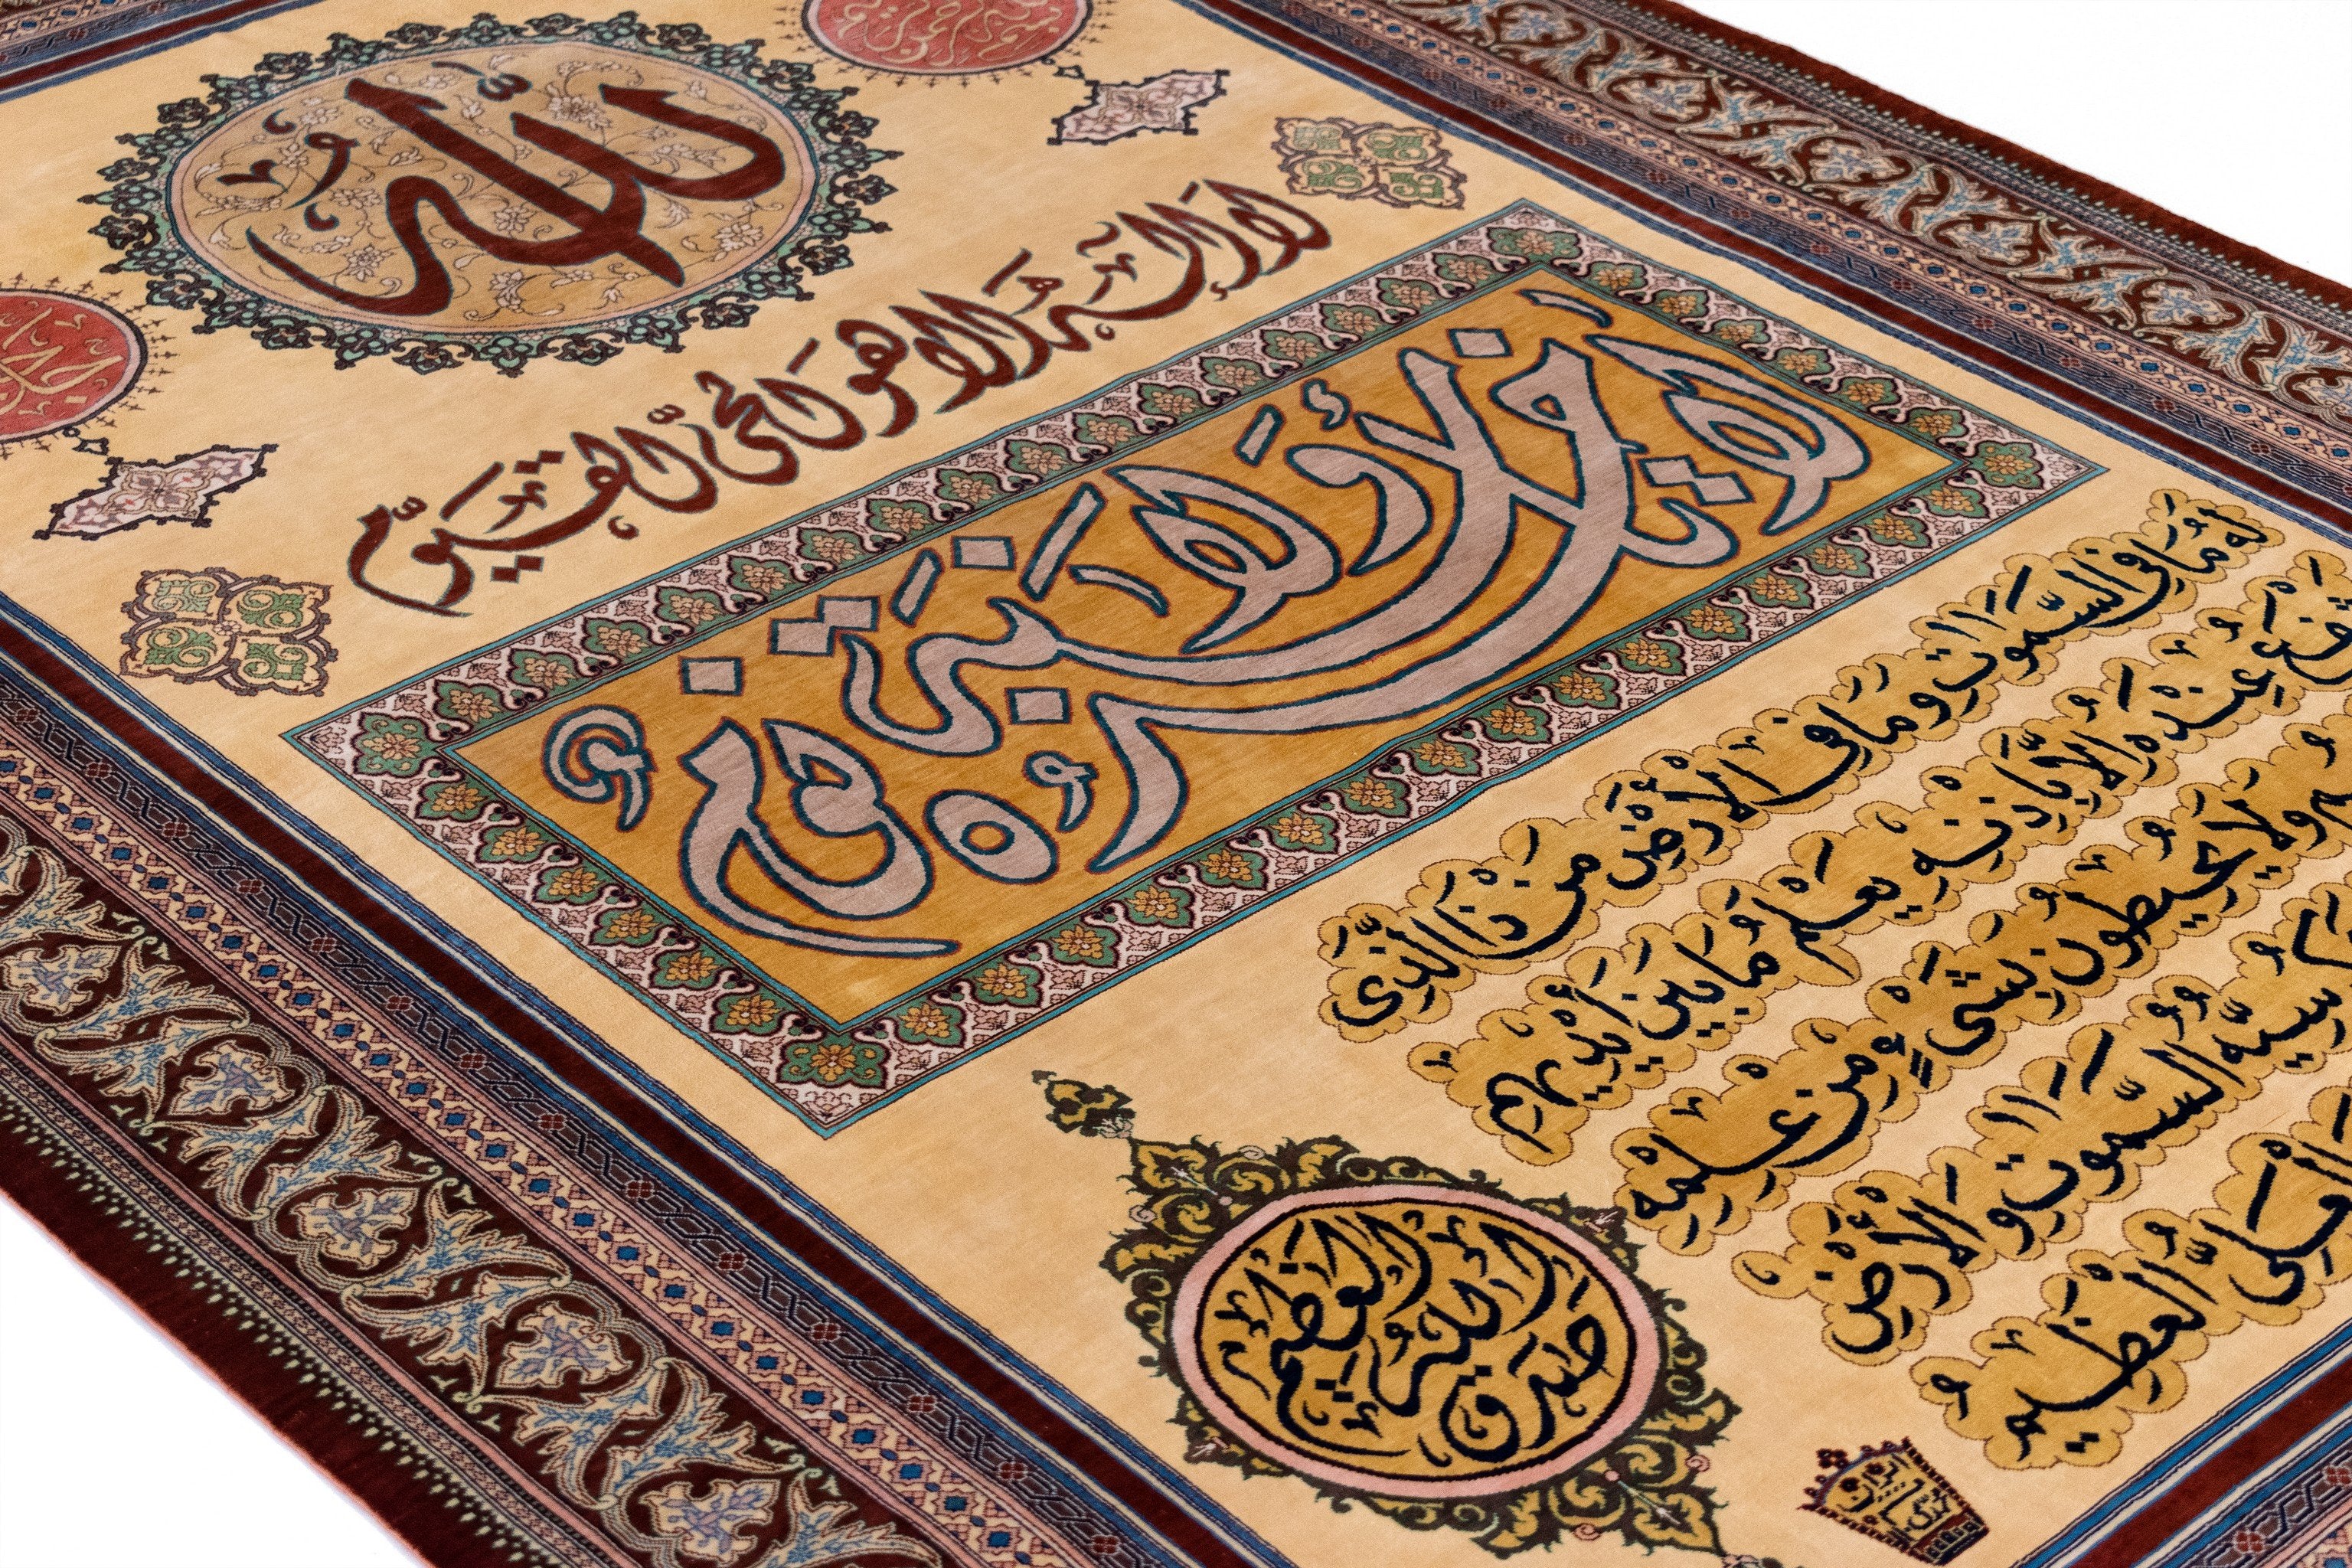 الله
لا إله إلا هو الحي القيوم
لا تأخذه سنة ولا نوم
له ما في السموات وما في الأرض من ذا الذي
عنده إلا بإذنه يعلم ما بين أيديهم
ولا يحيطون بشيء من علمه
كرسيه السموات والأرض
العلي العظيم
صدق الله العلي العظيم
ايران